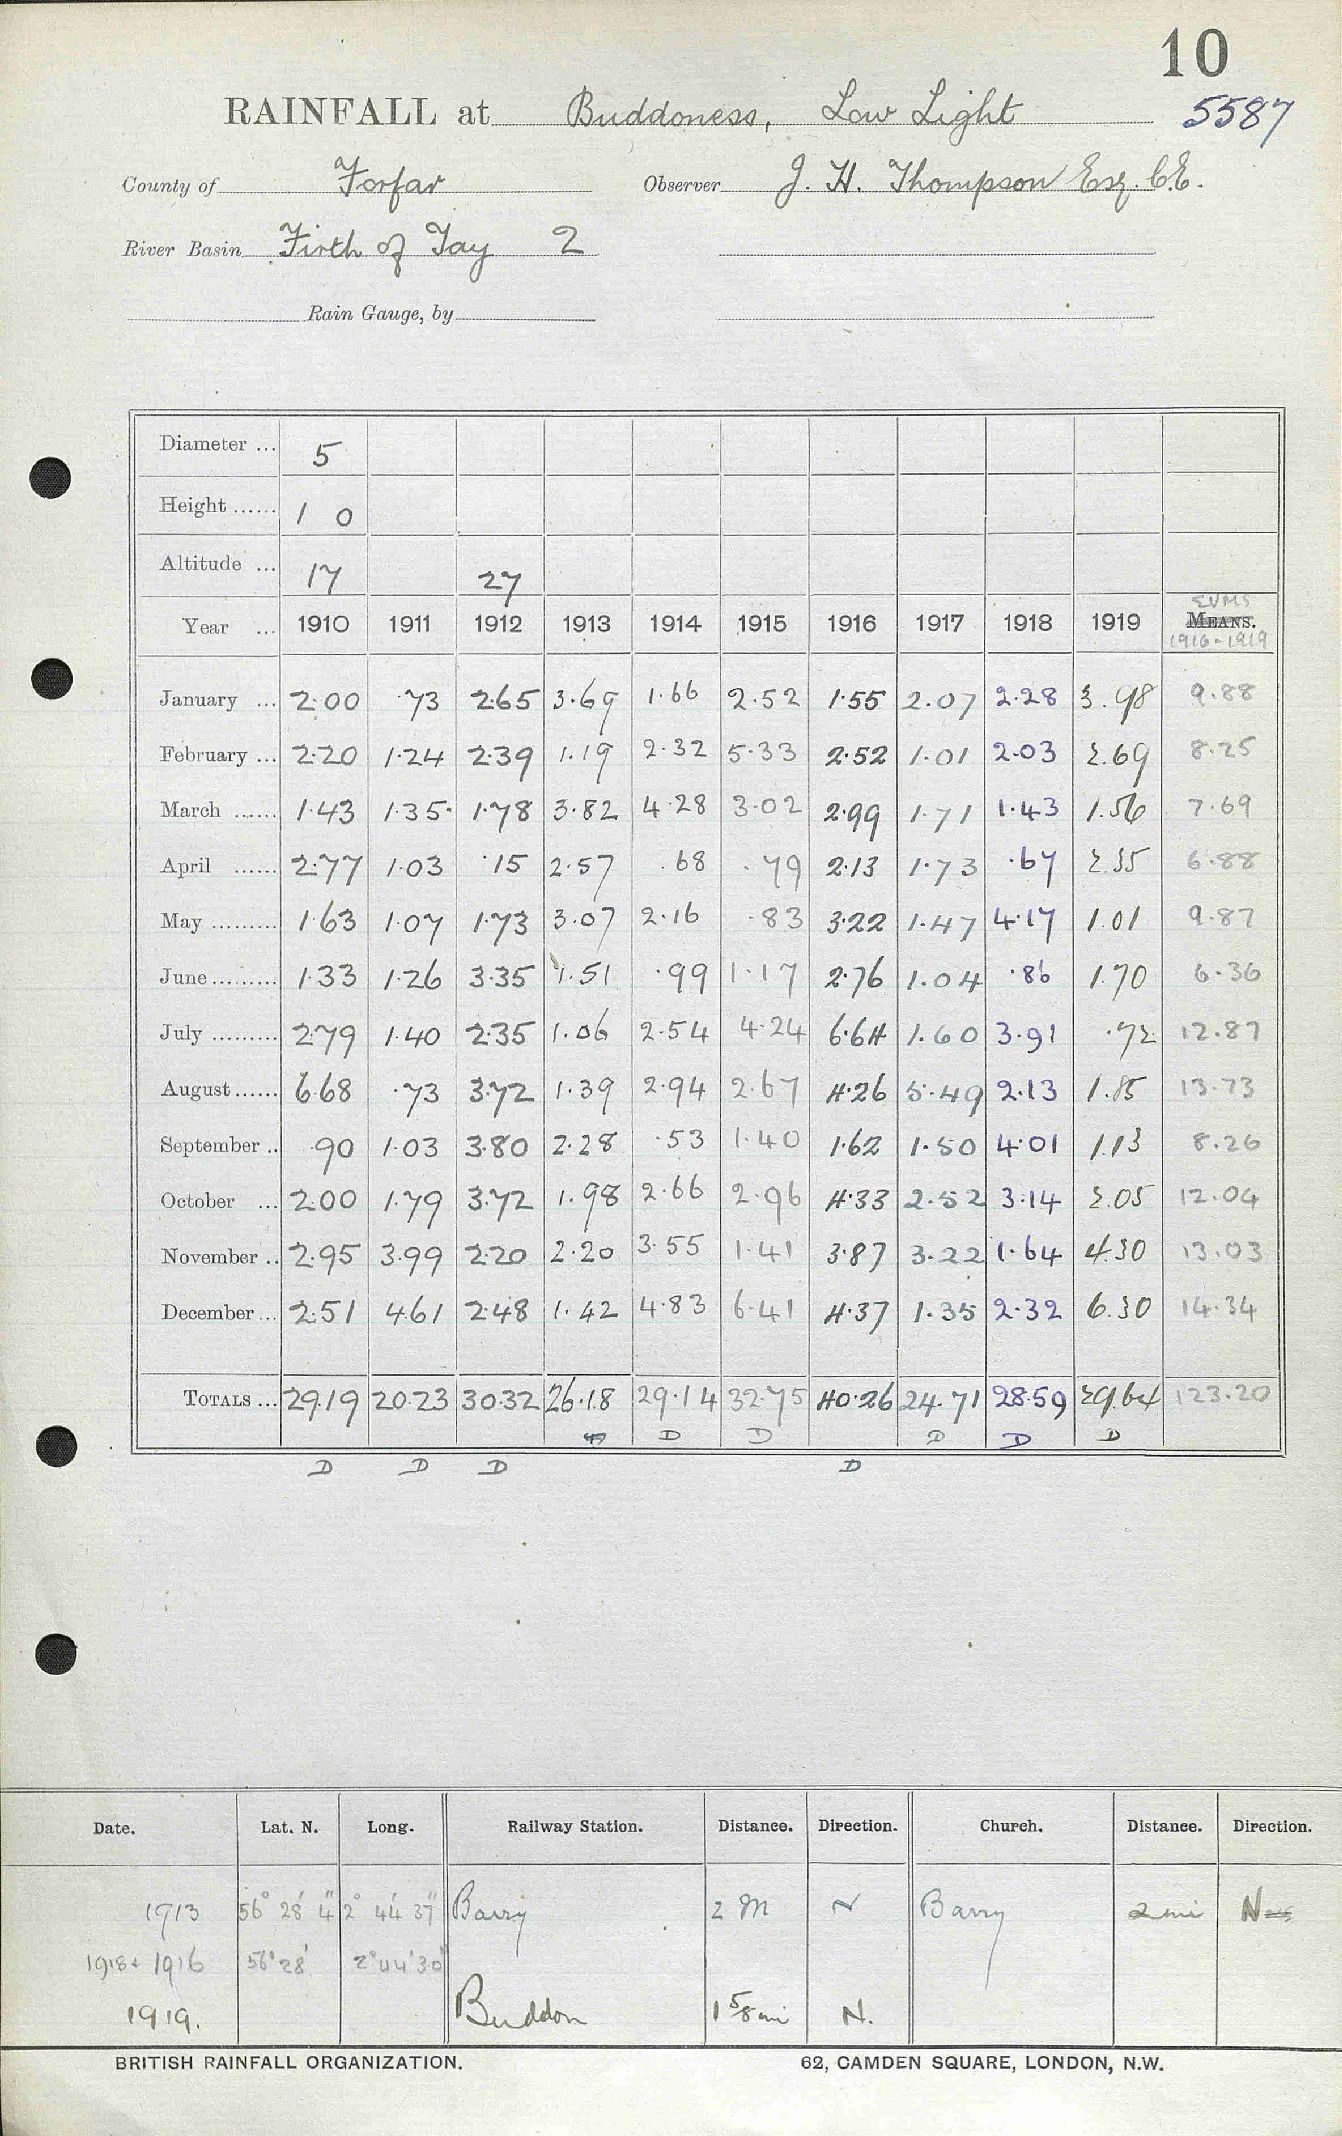 10
RAINFALL at Buddoness, Low Light 5587
County of Forfar Observer J. H. Thompson Esq. C.E.
River Basin Firth of Tay 2
Rain Gauge, by
Diameter ... 5
Height ...... 1 0
Altitude ... 17 27
SUMS
Year ... 1910 1911 1912 1913 1914 1915 1916 1917 1918 1919 MEANS.
1916-1919
January ... 2.00 .73 2.65 3.69 1.66 2.52 1.55 2.07 2.28 3.98 9.88
February ... 2.20 1.24 2.39 1.19 2.32 5.33 2.52 1.01 2.03 2.69 8.25
March ...... 1.43 1.35 1.78 3.82 4.28 3.02 2.99 1.71 1.43 1.56 7.69
April ...... 2.77 1.03 .15 2.57 .68 .79 2.13 1.73 .67 2.35 6.88
May ......... 1.63 1.07 1.73 3.07 2.16 .83 3.22 1.47 4.17 1.01 9.87
June ......... 1.33 1.26 3.35 1.51 .99 1.17 2.76 1.04 .86 1.70 6.36
July ......... 2.79 1.40 2.35 1.06 2.54 4.24 6.64 1.60 3.91 .72 12.87
August ...... 6.68 .73 3.72 1.39 2.94 2.67 4.26 5.49 2.13 1.85 13.73
September .. .90 1.03 3.80 2.28 .53 1.40 1.62 1.50 4.01 1.13 8.26
October ... 2.00 1.79 3.72 1.98 2.66 2.96 4.33 2.52 3.14 2.05 12.04
November .. 2.95 3.99 2.20 2.20 3.55 1.41 3.87 3.22 1.64 4.30 13.03
December ... 2.51 4.61 2.48 1.42 4.83 6.41 4.37 1.35 2.32 6.30 14.34
TOTALS ... 29.19 20.23 30.32 26.18 29.14 32.75 40.26 24.71 28.59 29.64 123.20
D D D D D
D D D D
Date. Lat. N. Long. Railway Station. Distance. Direction. Church. Distance. Direction.
1913 56° 28' 4" 2° 44' 37" Barry 2 M N Barry 2 mi N
1918+ 1916 56° 28' 2° 44' 30"
1919. Buddon 1 5/8 mi N.
BRITISH RAINFALL ORGANIZATION. 62, CAMDEN SQUARE, LONDON, N.W.